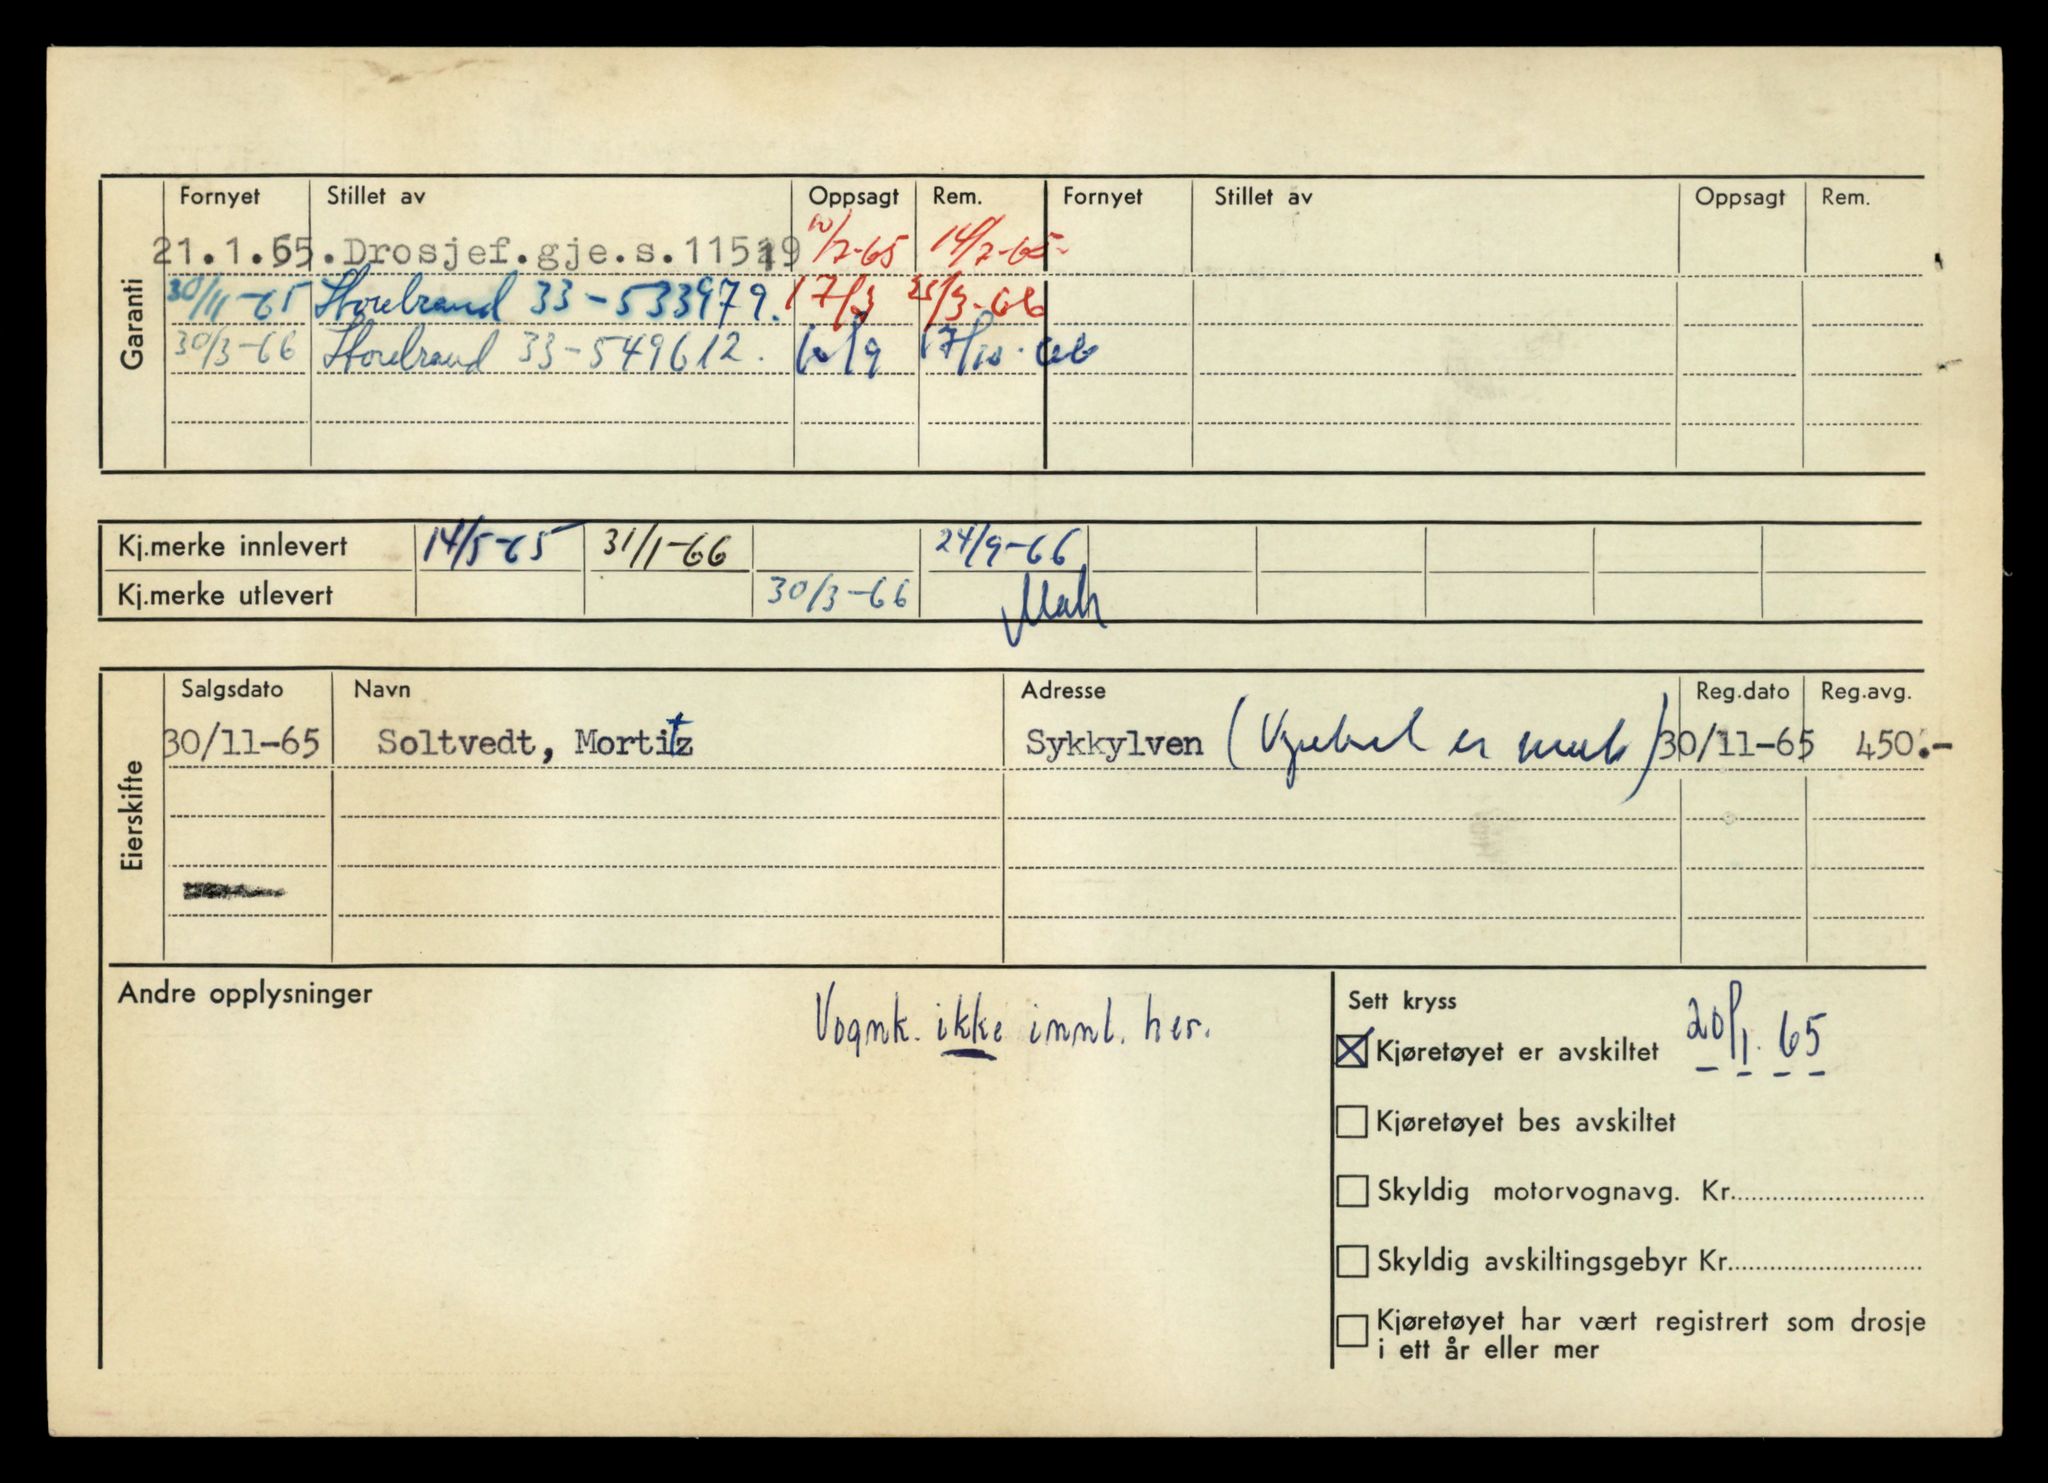 Garanti
Fornyet Stillet av Oppsagt Rem. Fornyet Stillet av Oppsagt Rem.
21.1.65. Drosjef.gje.s.11519 10/7-65 14/7-65-
30/11-65 Storebrand 33-533979. 17/3 25/3-66
30/3-66 Storebrand 33-549612. 10/9 17/10-66
Kj.merke innlevert 14/5-65 31/1-66 24/9-66
Kj.merke utlevert 30/3-66
Eierskifte
Salgsdato Navn Adresse Reg.dato Reg.avg.
30/11-65 Soltvedt, Moritz Sykkylven ( er ) 30/11-65 450.-
Andre opplysninger
Vognk. ikke innl. her.
Sett kryss
Kjøretøyet er avskiltet 20/1. 65
Kjøretøyet bes avskiltet
Skyldig motorvognavg. Kr.
Skyldig avskiltingsgebyr Kr.
Kjøretøyet har vært registrert som drosje
i ett år eller mer